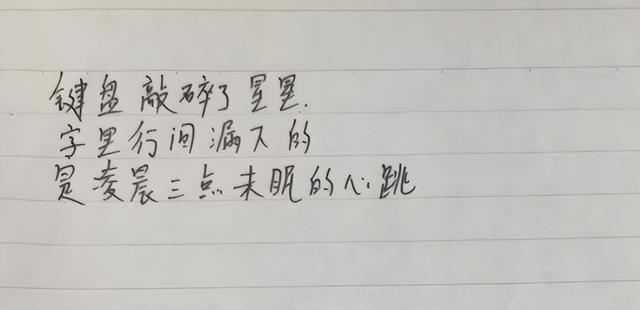 键盘敲碎了星星.
字里行间漏下的
是凌晨三点未眠的心跳